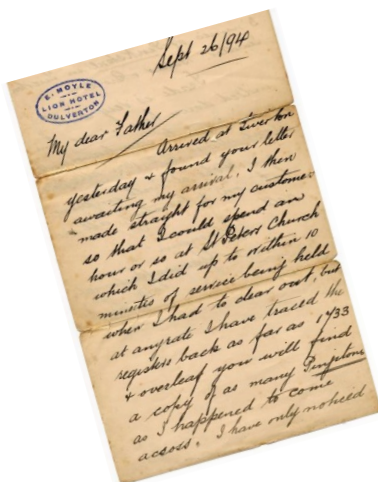 Sept 26/94
E. MOYLE
LION HOTEL
DULVERTON
My dear Father
Arrived at Tiverton
yesterday & found your letter
awaiting my arrival. I then
made straight for my customer
so that I could spend an
hour or so at St Peters Church
which I did up to within 10
minutes of service being held
when I had to clear out, but
at anyrate I have traced the
registers back as far as 1733
& overleaf you will find
a copy of as many
as I happened to come
across. I have only noticed